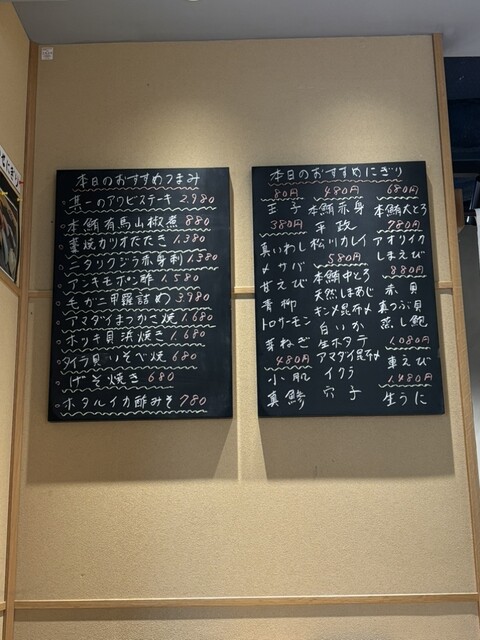 本日のおすすめつまみ
真一のアワビステーキ 2.980
本鮪有馬山椒煮 880
藁焼カツオたたき 1.380
ニタリクジラ赤身刺 1.380
アンキモポン酢 1.580
毛ガニ甲羅詰め 3.980
アマダイまつかさ焼 1.680
ホッキ貝浜焼き 1.680
タイラ貝いそべ焼 680
げそ焼き 680
ホタルイカ酢みそ 780
本日のおすすめにぎり
80円
玉子
380円
真いわし
〆サバ
甘えび
青柳
トロサーモン
芽ねぎ
480円
小肌
真鯵
480円
本鮪赤身
平政
松川カレイ
580円
本鮪中とろ
天然しまあじ
キンメ昆布〆
白いか
生ホタテ
アマダイ昆布〆
イクラ
穴子
680円
本鮪大とろ
780円
アオリイカ
しまえび
880円
赤貝
真つぶ貝
蒸し鮑
1.080円
車えび
1.480円
生うに